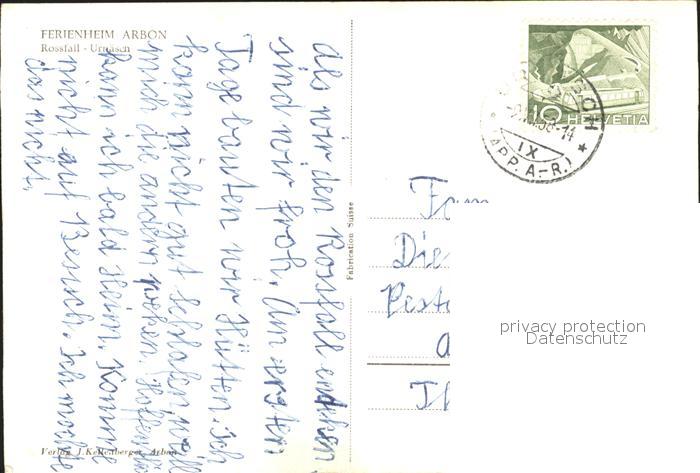 FERIENHEIM ARBON
Rossfall - Urnäsch
als wir den Rossfall entdeckten
sind wir froh. Am ersten
Tage bauten wir Hütten. Ich
kann nicht gut schlafen, weil
mich die andern necken. Hoffentlich
kann ich bald Heim. Kommt
nicht auf Besuch. Ich möchte
das nicht.
Verlag J. Kellenberger, Arbon
Fabrication Suisse
10 HELVETIA
IX
(APP. A.-R.)
Fam
Die
Pest
a
Th
privacy protection
Datenschutz